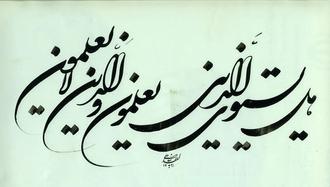 هل یستوی الذین یعلمون والذین لا یعلمون